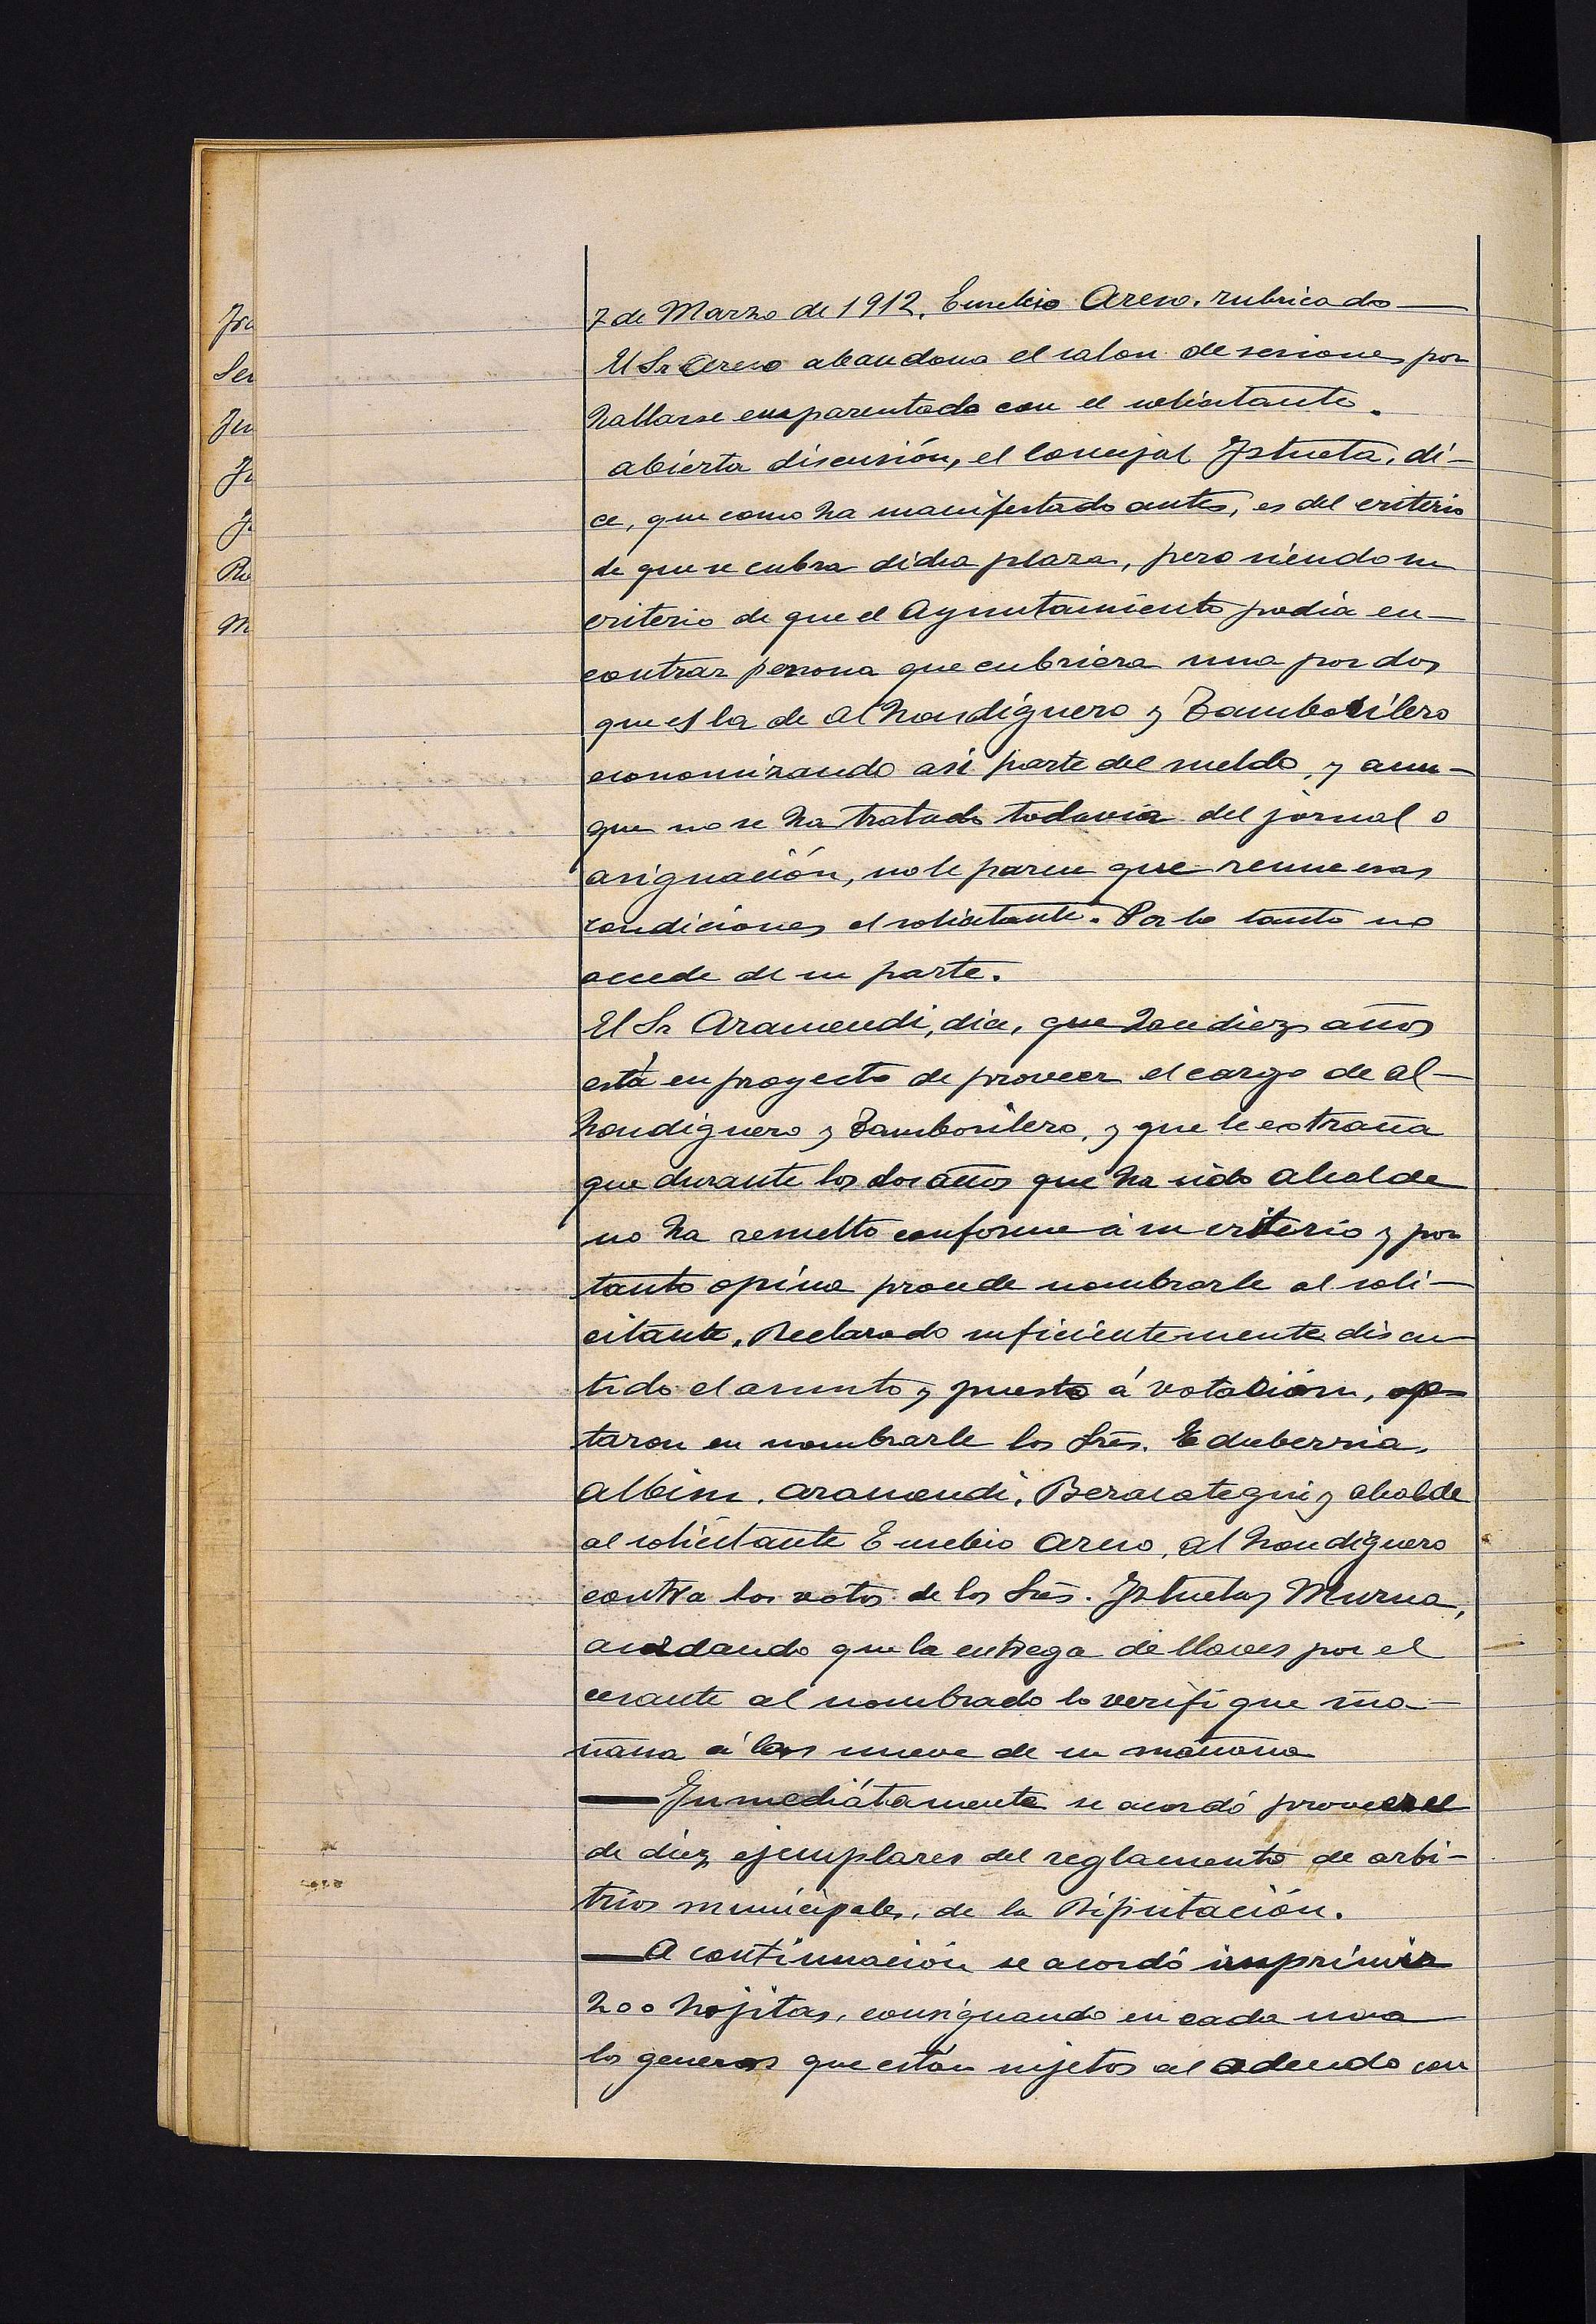 7 de Marzo de 1912, Eusebio Areso. rubricado—
El Sr Areso abandona el salon de sesiones por
hallarse emparentado con el solicitante.
abierta discusión, el Concejal Iztueta, di-
ce, que como ha manifestado antes, es del criterio
de que se cubra dicha plaza, pero siendo su
criterio de que el Ayuntamiento podia en-
contrar persona que cubriera una por dos
que es la de alhondiguero y Tamborilero
economizando asi parte del sueldo, y aun-
que no se ha tratado todavia del jornal o
asignación, no le parece que reune esas
condiciones el solicitante. Por lo tanto no
accede de su parte.
El Sr Aramendi, dice, que hace diez años
está en proyecto de proveer el cargo de al-
hondiguero y Tamborilero, y que le extraña
que durante los dos años que ha sido alcalde
no ha resuelto conforme á su criterio y por
tanto opina procede nombrarle al soli-
citante. Declarado suficientemente discu-
tido el asunto y puesto á votación, op-
taron en nombrarle los Srēs. Echeberria,
Albisu, Aramendi, Beracategui y alcalde
al solicitante Eusebio Areso, alhondiguero
contra los votos de los Srēs. Iztueta y Murua,
acordando que la entrega de llaves por el
cesante al nombrado lo verifique ma-
ñana á las nueve de su mañana
— Inmediátamente se acordó proveerse
de diez ejemplares del reglamento de arbi-
trios municipales, de la Diputación.
— A continuación se acordó imprimir
200 hojitas, consignando en cada una
los generos que están sujetos al adeudo con
Fra
Ser
Ju
M